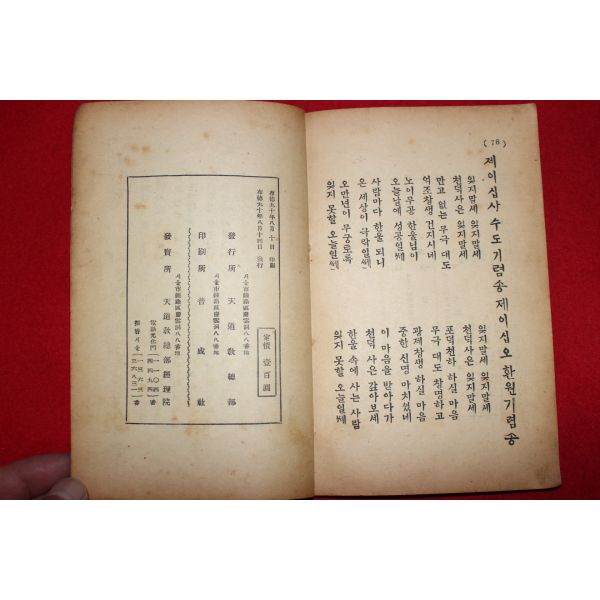 (78)
제이십사 수도기렴송
잊지말세 잊지말세
천덕사은 잊지말세
만고 없는 무극 대도
억조창생 건지시네
노이무공 한울님이
오늘날에 성공일쎄
사람마다 한울 되니
온 세상이 극락일쎄
오만년이 무궁토록
잊지 못할 오늘일쎄
제이십오 환원기렴송
잊지말세 잊지말세
천덕사은 잊지말세
포덕천하 하실 마음
무극 대도 창명하고
광제창생 하실 마음
중한 신명 마치셨네
이 마음을 받아다가
천덕 사은 갚아보세
한울 속에 사는 사람
잊지 못할 오늘일쎄
布德九十年八月十日 印刷
布德九十年八月十四日 發行
定價 壹百圓
서울市鍾路區慶雲洞八八番地
發行所 天道敎總部
서울市鍾路區慶雲洞八八番地
印刷所 普成社
서울市鍾路區慶雲洞八八番地
發賣所 天道敎總部經理院
電話光化門
振替서울